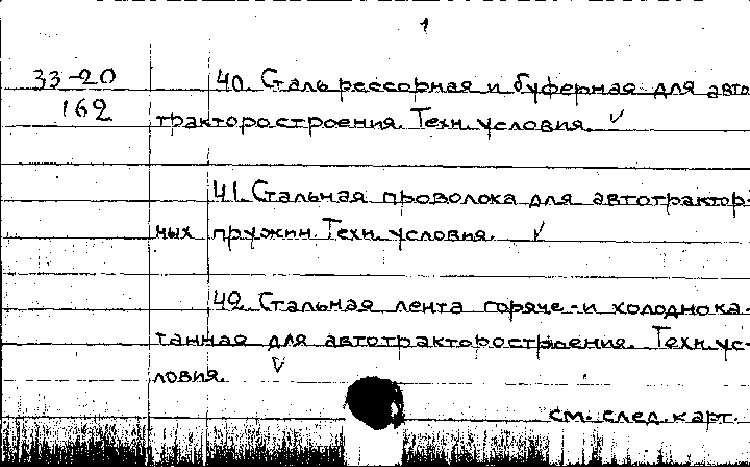 1
33-20 40. Сталь рессорная и буферная для авто
162
тракторостроения. Техн. условия. ✓
41. Стальная проволока для автотрактор-
ных пружин. Техн. условия. ✓
42. Стальная лента горяче-и холоднока-
танная для автотракторостроения. Техн. ус-
ловия. ✓
см. след. карт.